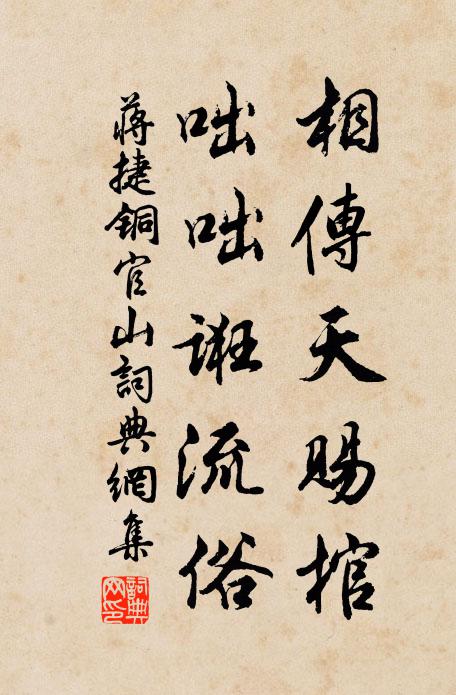 相傳天賜棺
咄咄誑流俗
蔣捷铜官山詞典網集
詞典网印